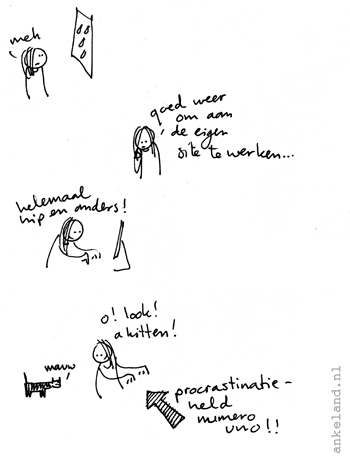 meh
goed weer
om aan
de eigen
site te werken...
helemaal
hip en anders!
o! look!
a kitten!
mauw
procrastinatie-
held
numero
uno!!
ankeland.nl